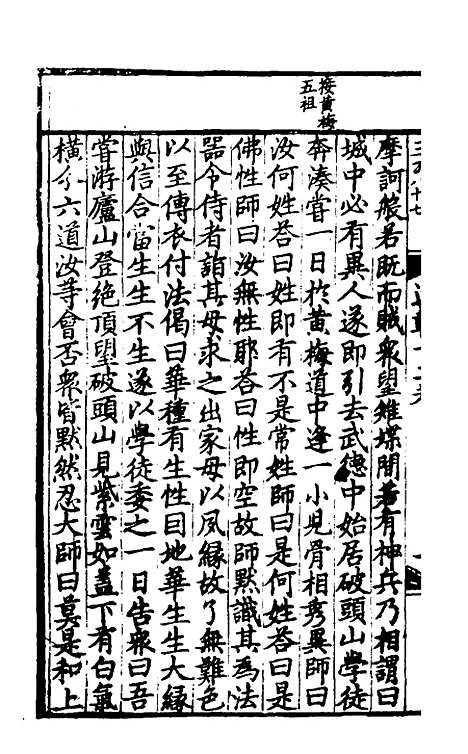 摩訶般若既而賊衆望雉堞間若有神兵乃相謂曰
城中必有異人遂即引去武德中始居破頭山學徒
奔湊嘗一日於黃梅道中逢一小兒骨相秀異師曰
汝何姓荅曰姓即有不是常姓師曰是何姓荅曰是
佛性師曰汝無性耶荅曰性即空故師默識其爲法
噐令侍者詣其母求之出家母以夙縁故了無難色
以至傳衣付法偈曰華種有生性曰地華生生大縁
與信合當生生不生遂以學徒委之一日告衆曰吾
嘗游廬山登絶頂望破頭山見紫雲如蓋下有白氣
横分六道汝等會否衆皆默然忍大師曰莫是和上
接黃梅
五祖